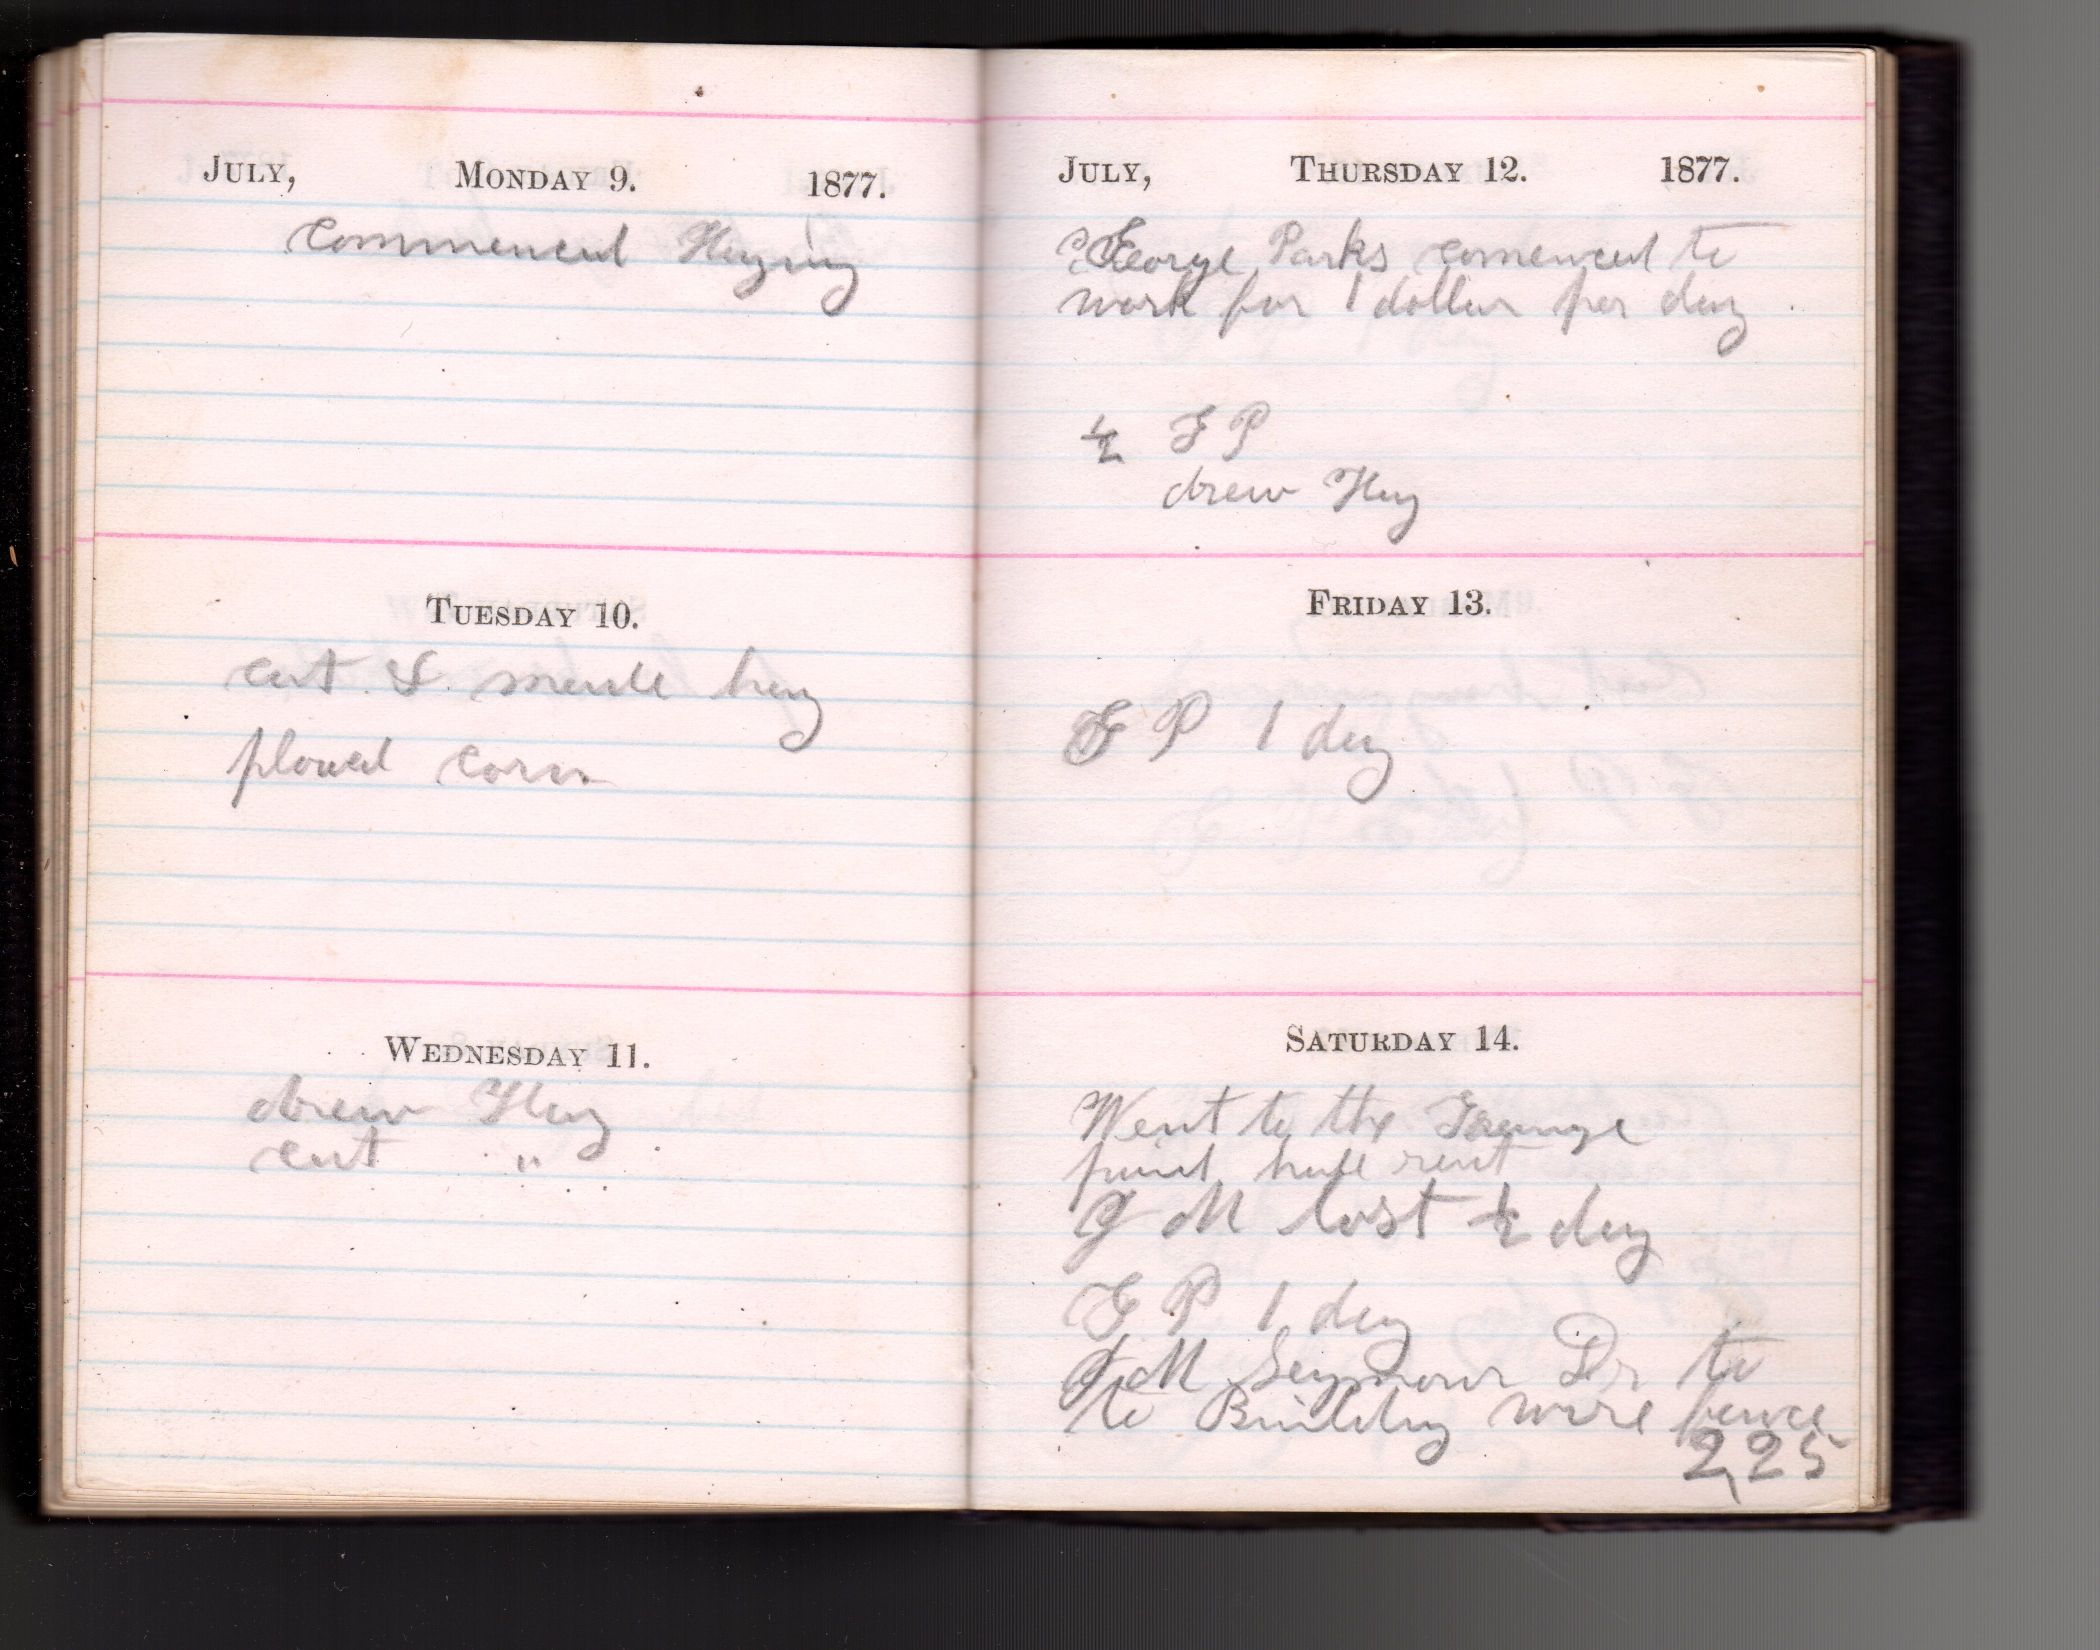 JULY, MONDAY 9. 1877.
commenced Haying
TUESDAY 10.
cut & made hay
plowed corn
WEDNESDAY 11.
drew Hay
cut "
JULY, THURSDAY 12. 1877.
George Parks comenced to
work for 1 dollar per day
1/2 G P
drew Hay
FRIDAY 13.
G P 1 day
SATURDAY 14.
Went to the Grange
paid hall rent
J M lost 1/2 day
G P 1 day
J M Seymour Dr to
to Building wire fence
2,25